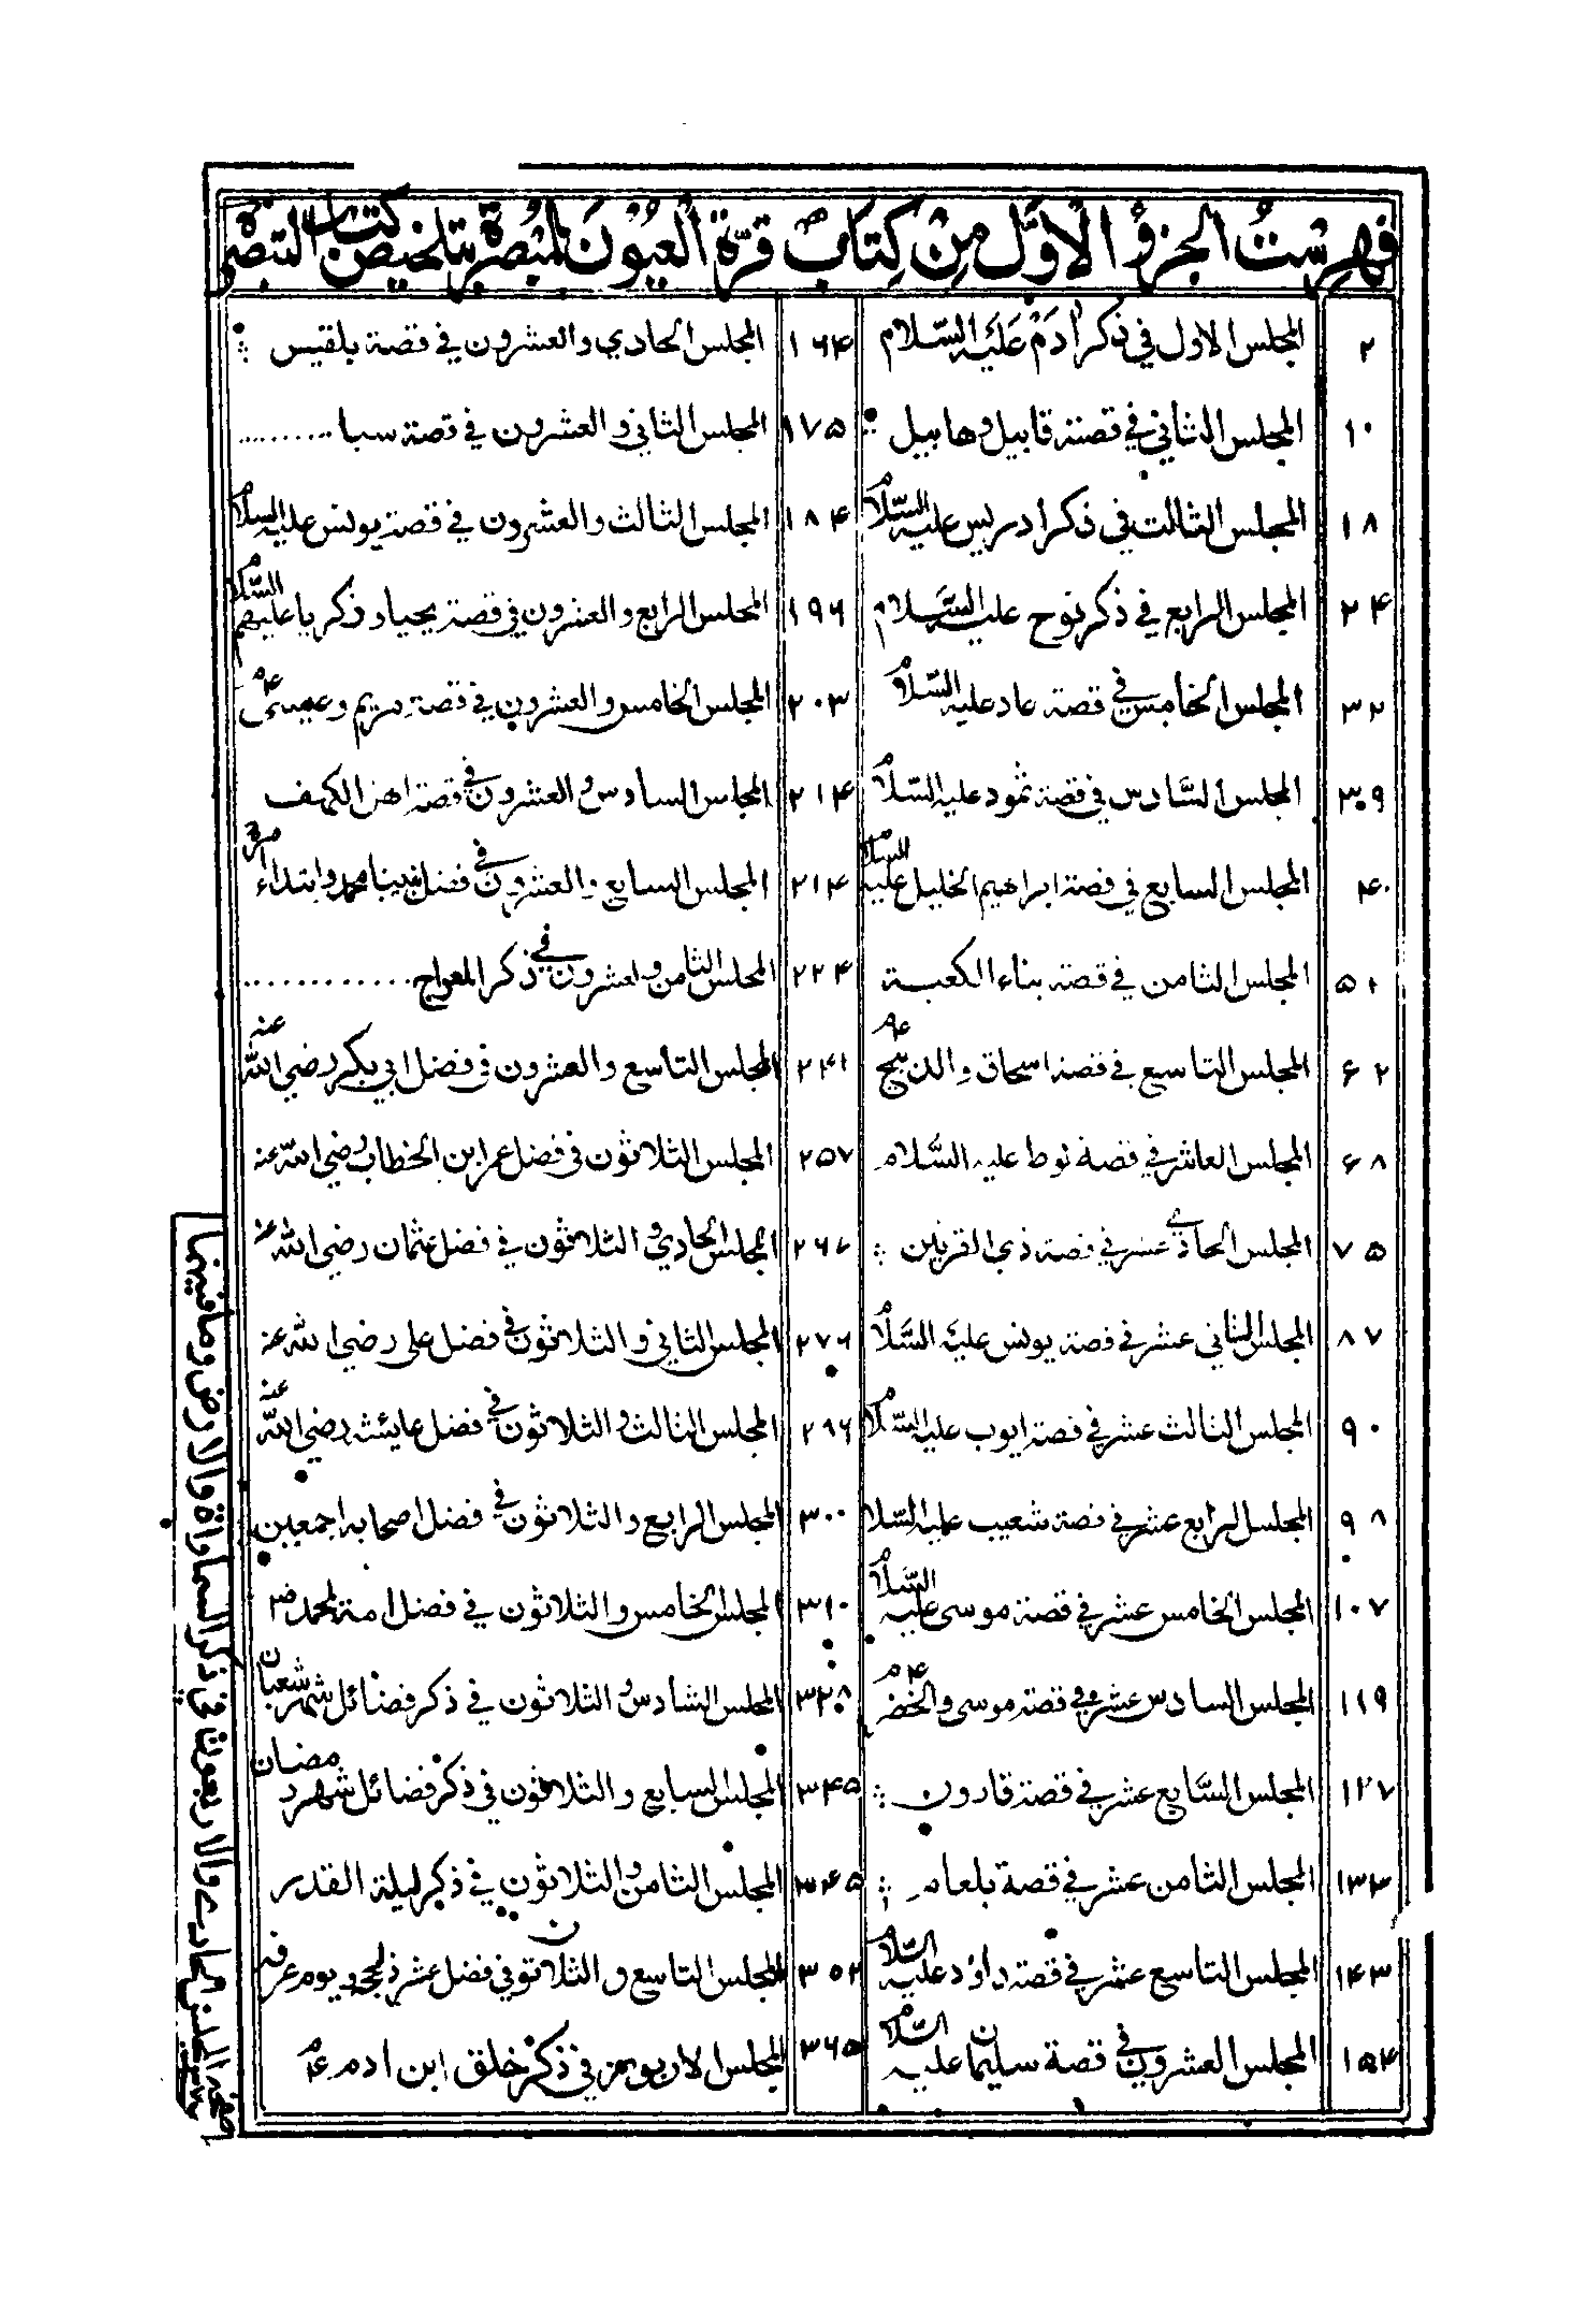 فهرست الجزؤ الاول من كتاب قرة العيون المبصرة بتلخيص كتاب التبصرة
٢ المجلس الاول في ذكر ادم عليه السلام
١٠ المجلس الثاني في قصة قابيل وهابيل
١٨ المجلس الثالث في ذكر ادريس عليه السلام
٢۴ المجلس الرابع في ذكر نوح عليه السلام
٣٢ المجلس الخامس في قصة عاد عليه السلام
٣٠٩ المجلس السادس في قصة ثمود عليه السلام
۴٠ المجلس السابع في قصة ابراهيم الخليل عليه السلام
٥١ المجلس الثامن في قصة بناء الكعبة
۶٢ المجلس التاسع في قصة اسحاق والذبيح ع
۶٨ المجلس العاشر في قصة لوط عليه السلام
٧٥ المجلس الحادي عشر في قصة ذي القرنين
٨٧ المجلس الثاني عشر في قصة يونس عليه السلام
٩٠ المجلس الثالث عشر في قصة ايوب عليه السلام
٩٨ المجلس الرابع عشر في قصة شعيب عليه السلا
١٠٧ المجلس الخامس عشر في قصة موسى عليه السلام
١١٩ المجلس السادس عشر في قصة موسى والخضر ع م
١٢٧ المجلس السابع عشر في قصة قارون
١٣٣ المجلس الثامن عشر في قصة بلعام
١۴٣ المجلس التاسع عشر في قصة داؤد عليه السلا
١٥۴ المجلس العشرون في قصة سليمان عليه السلام
١۶۴ المجلس الحادي والعشرون في قصة بلقيس
١٧٥ المجلس الثاني والعشرون في قصة سبا ..........
١٨۴ المجلس الثالث والعشرون في قصة يونس عليه السلام
١٩۶ المجلس الرابع والعشرون في قصة يحيا و ذكريا عليهم السلام
٢٠٣ المجلس الخامس والعشرون في قصة مريم وعيسى ع م
٢١۴ المجلس السادس والعشرون في قصة اهل الكهف
٢١۴ المجلس السابع والعشرون في فضل نبينا محمد وابتداء امره
٢٢۴ المجلس الثامن والعشرون في ذكر المعراج ............
٢۴١ المجلس التاسع والعشرون في فضل ابي بكر رضي الله عنه
٢٥٧ المجلس الثلاثون في فضل عمر ابن الخطاب رضي الله عنه
٢۶٧ المجلس الحادي و الثلاثون في فضل عثمان رضي الله عنه
٢٧۶ المجلس الثاني و الثلاثون في فضل علي رضي الله عنه
٢٩۶ المجلس الثالث والثلاثون في فضل عايشة رضي الله عنه
٣٠٠ المجلس الرابع و الثلاثون في فضل اصحابه اجمعين
٣١٠ المجلس الخامس والثلاثون في فضل امة محمد ص
٣٢٨ المجلس السادس و الثلاثون في ذكر فضائل شهر شعبان
٣۴٥ المجلس السابع و الثلاثون في ذكر فضائل شهر رمضان
٣۴٥ المجلس الثامن والثلاثون في ذكر ليلة القدر
٣٥٢ المجلس التاسع و الثلاثون في فضل عشر ذلحجه ويوم عرفه
٣۶٥ المجلس الاربعون في ذكر خلق ابن ادم ع م
المجلس الحادي والاربعون في ذكر السماواة والارض وما فيهما